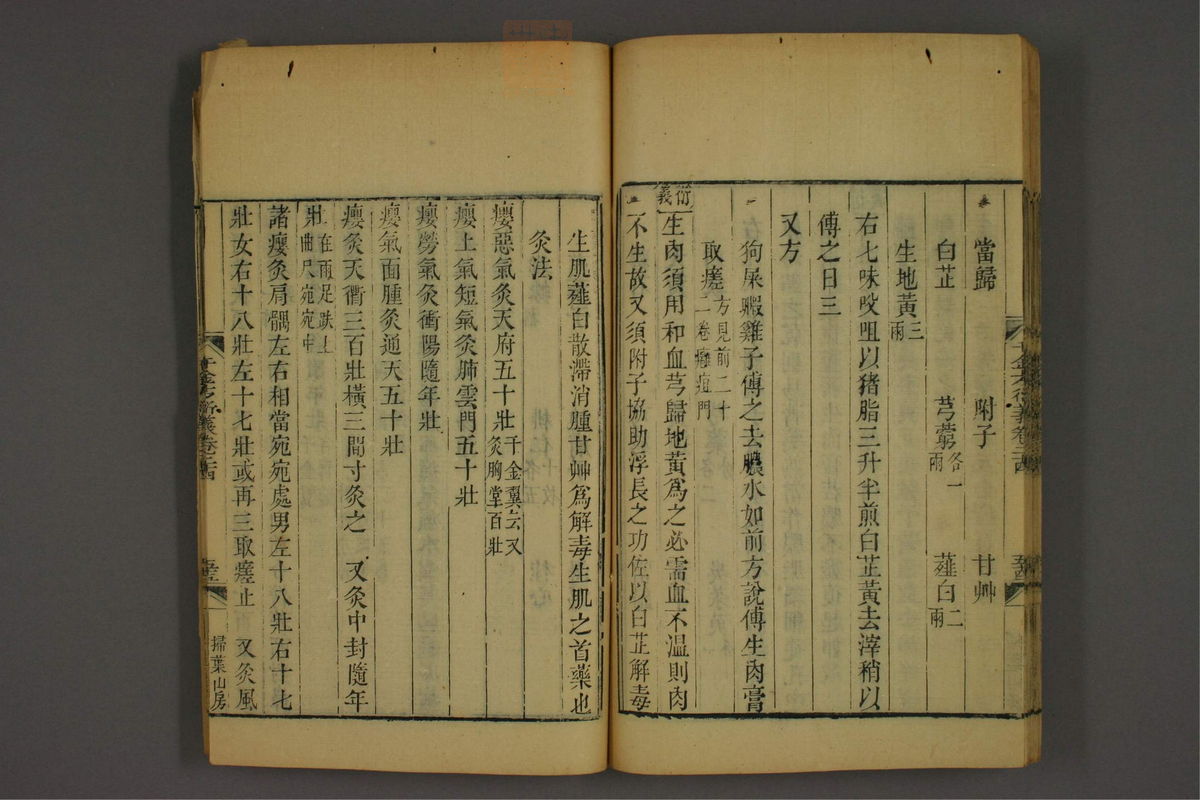 當歸 附子 甘艸
白芷 芎藭各一兩 薤白二兩
生地黃三兩
右七味㕮咀以猪脂三升半煎白芷黃去滓稍以
傅之日三
又方
狗屎㬉雞子傅之去膿水如前方說傅生肉膏
取瘥方見前二十二卷癰疽門
衍義
生肉須用和血芎歸地黃爲之必需血不溫則肉
不生故又須附子協助浮長之功佐以白芷解毒
生肌薤白散滯消腫甘艸爲解毒生肌之首藥也
灸法
癭惡氣灸天府五十壯千金翼云又灸胸堂百壯
癭上氣短氣灸肺雲門五十壯
癭勞氣灸衝陽隨年壯
癭氣面腫灸通天五十壯
癭灸天衢三百壯橫三間寸灸之 又灸中封隨年
壯在兩足趺上曲尺宛宛中
諸癭灸肩髃左右相當宛宛處男左十八壯右十七
壯女右十八壯左十七壯或再三取瘥止 又灸風
千金方衍義卷二十四
掃葉山房